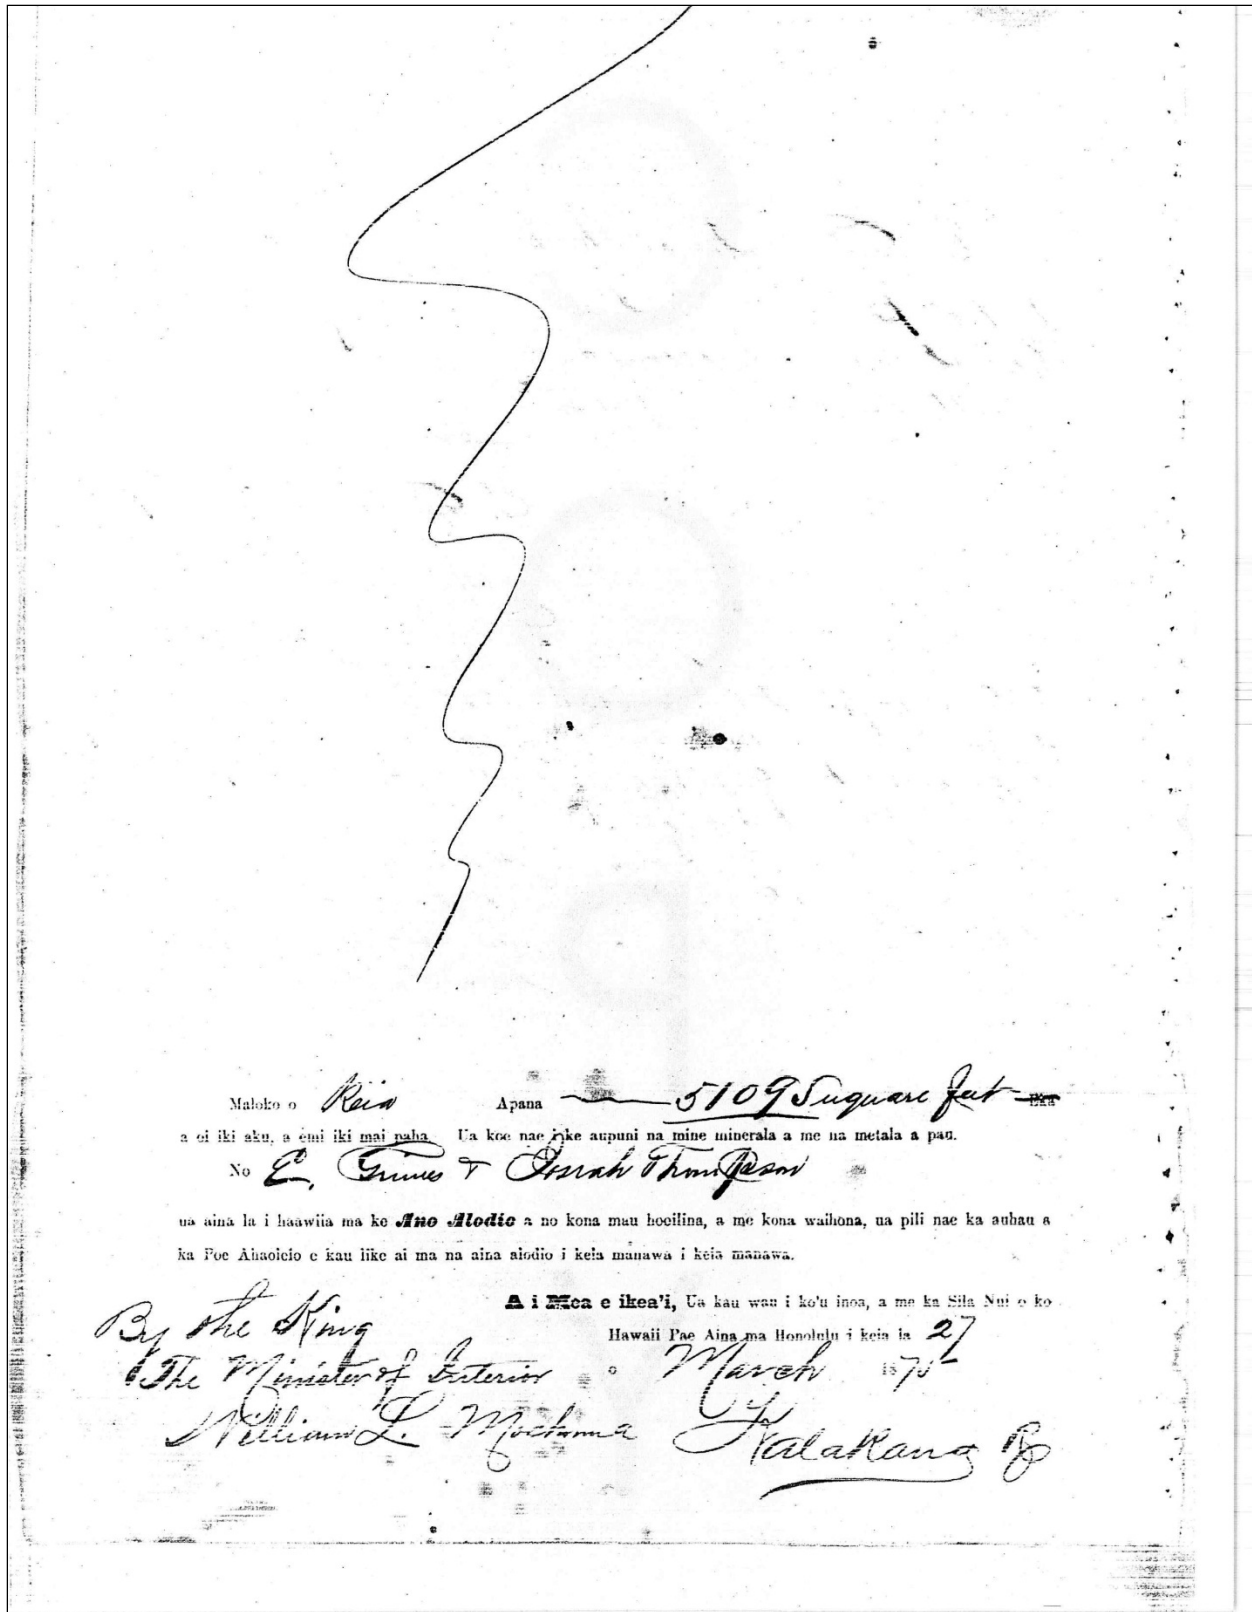 Maloko o Keia Apana 5109 Suquare feet Eka
a oi iki aku, a emi iki mai paha Ua koe nae i ke aupuni na mine minerala a me na metala a pau.
No E. Grimes & Josiah Thompson
ua aina la i haawiia ma ke Ano Alodio a no kona mau hooilina, a me kona waihona, ua pili nae ka auhau a
ka Poe Ahaolelo e kau like ai ma na aina alodio i keia manawa i keia manawa.
A i Mea e ikea'i, Ua kau wau i ko'u inoa, a me ka Sila Nui o ko
By the King
Hawaii Pae Aina ma Honolulu i keia la 27
The Minister of Interior o March 1875
William L. Kalakaua R